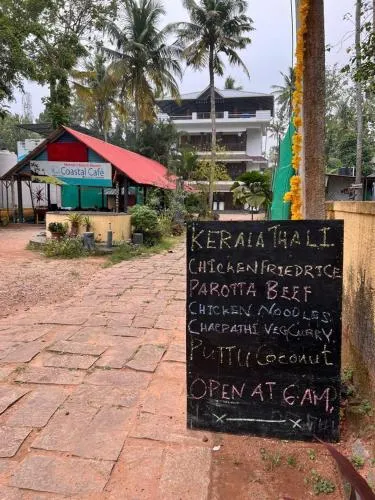 Coastal Café
KERALA THALI
CHICKEN FRIEDRICE
PAROTTA BEEF
CHICKEN NOODLES
CHAPPATHI VEG CURRY
PUTTU COCONUT
OPEN AT 6 AM,